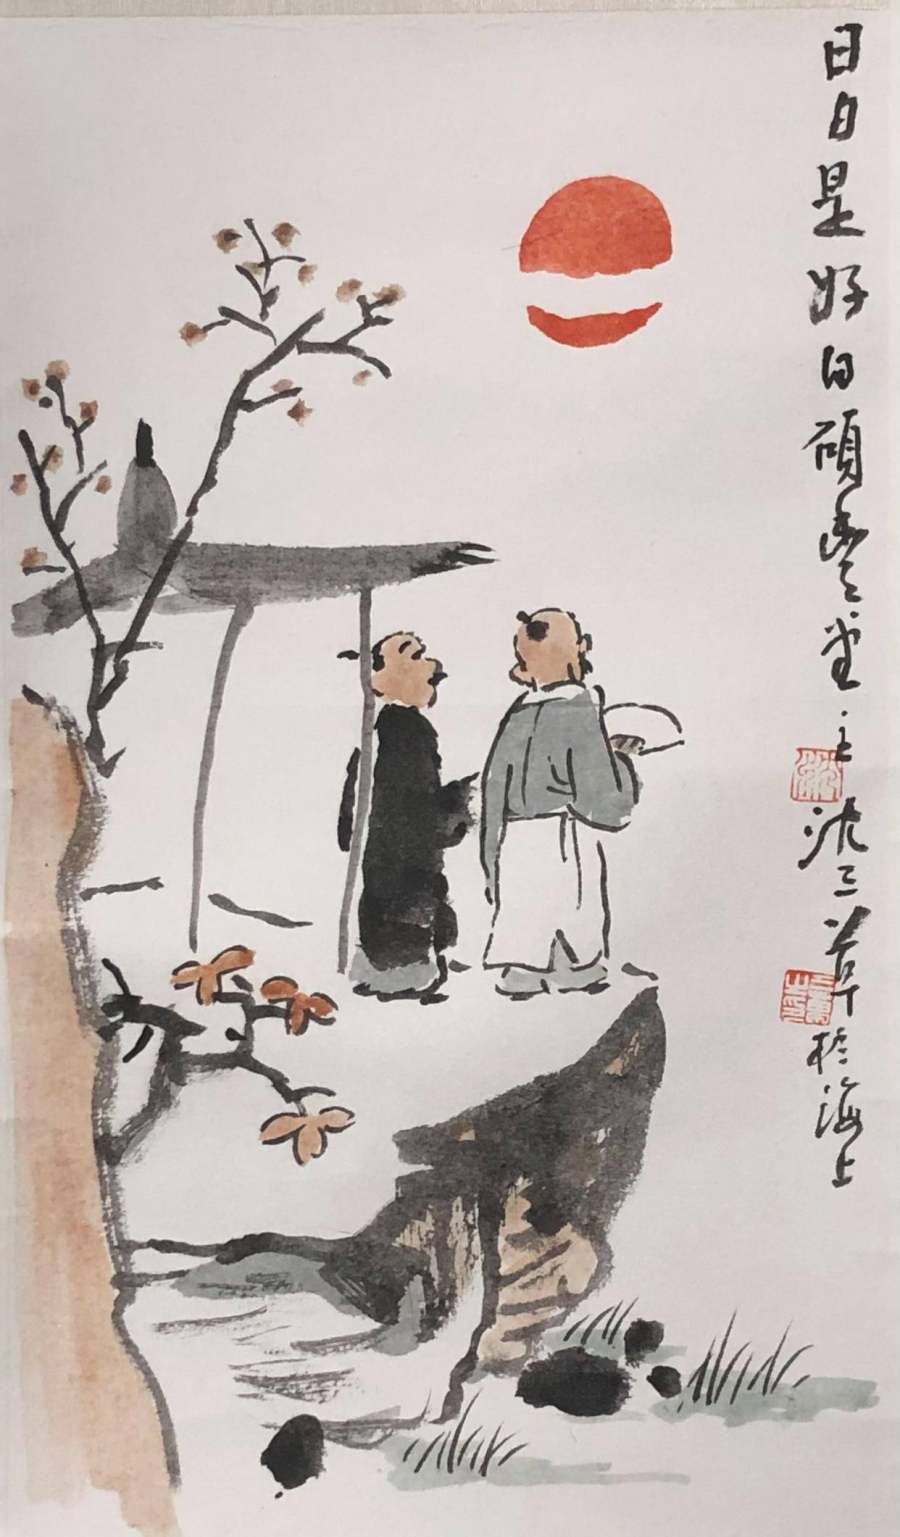 日日是好日硕丰堂主沈三草於海上